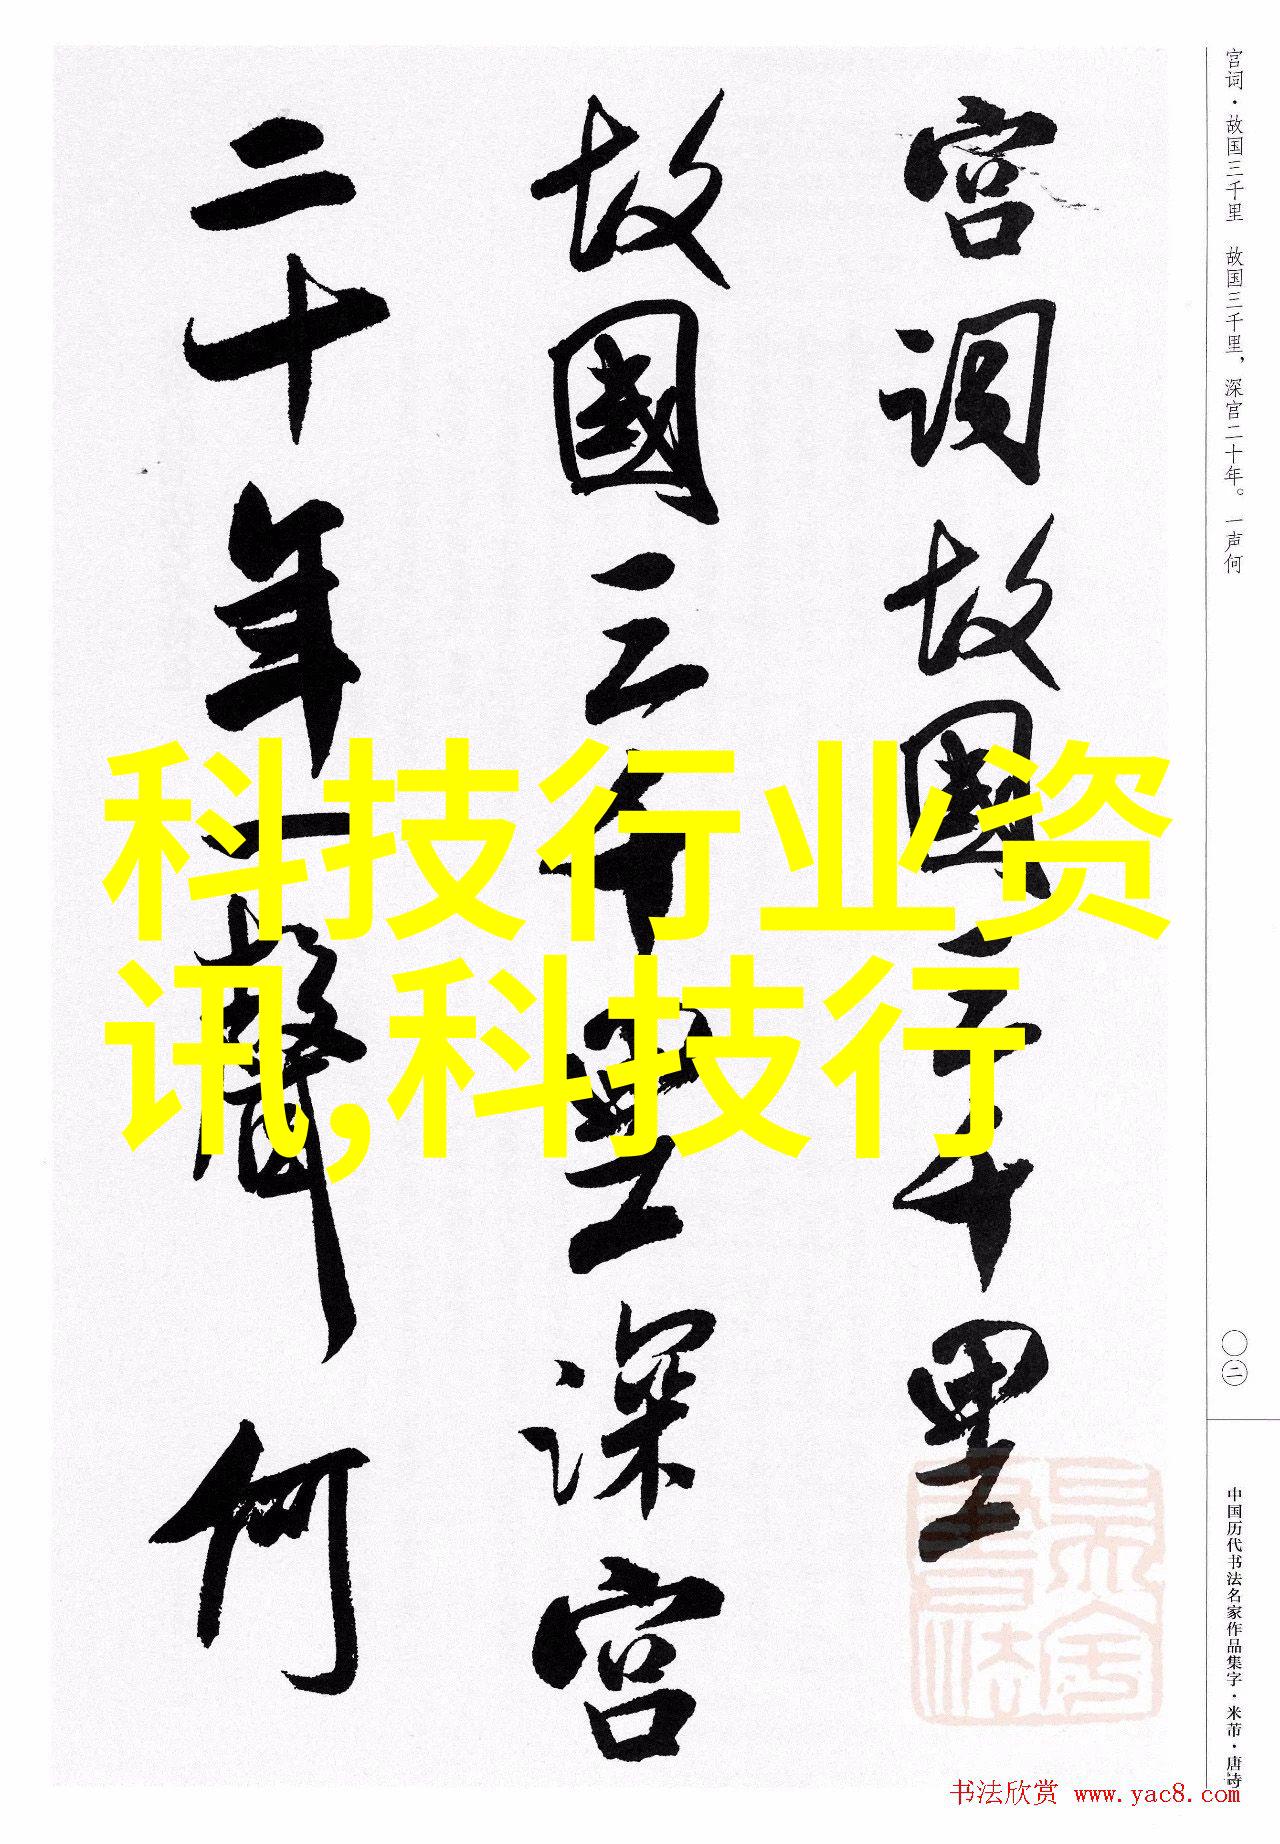 宫词故國三千里
故國三千里深宫
二十年一聲何
宫词·故国三千里　故国三千里，深宫二十年。一声何
〇二
中国历代书法名家作品集字·米芾·唐诗
科技行业资
讯,科技行
书法欣赏 www.yac8.com